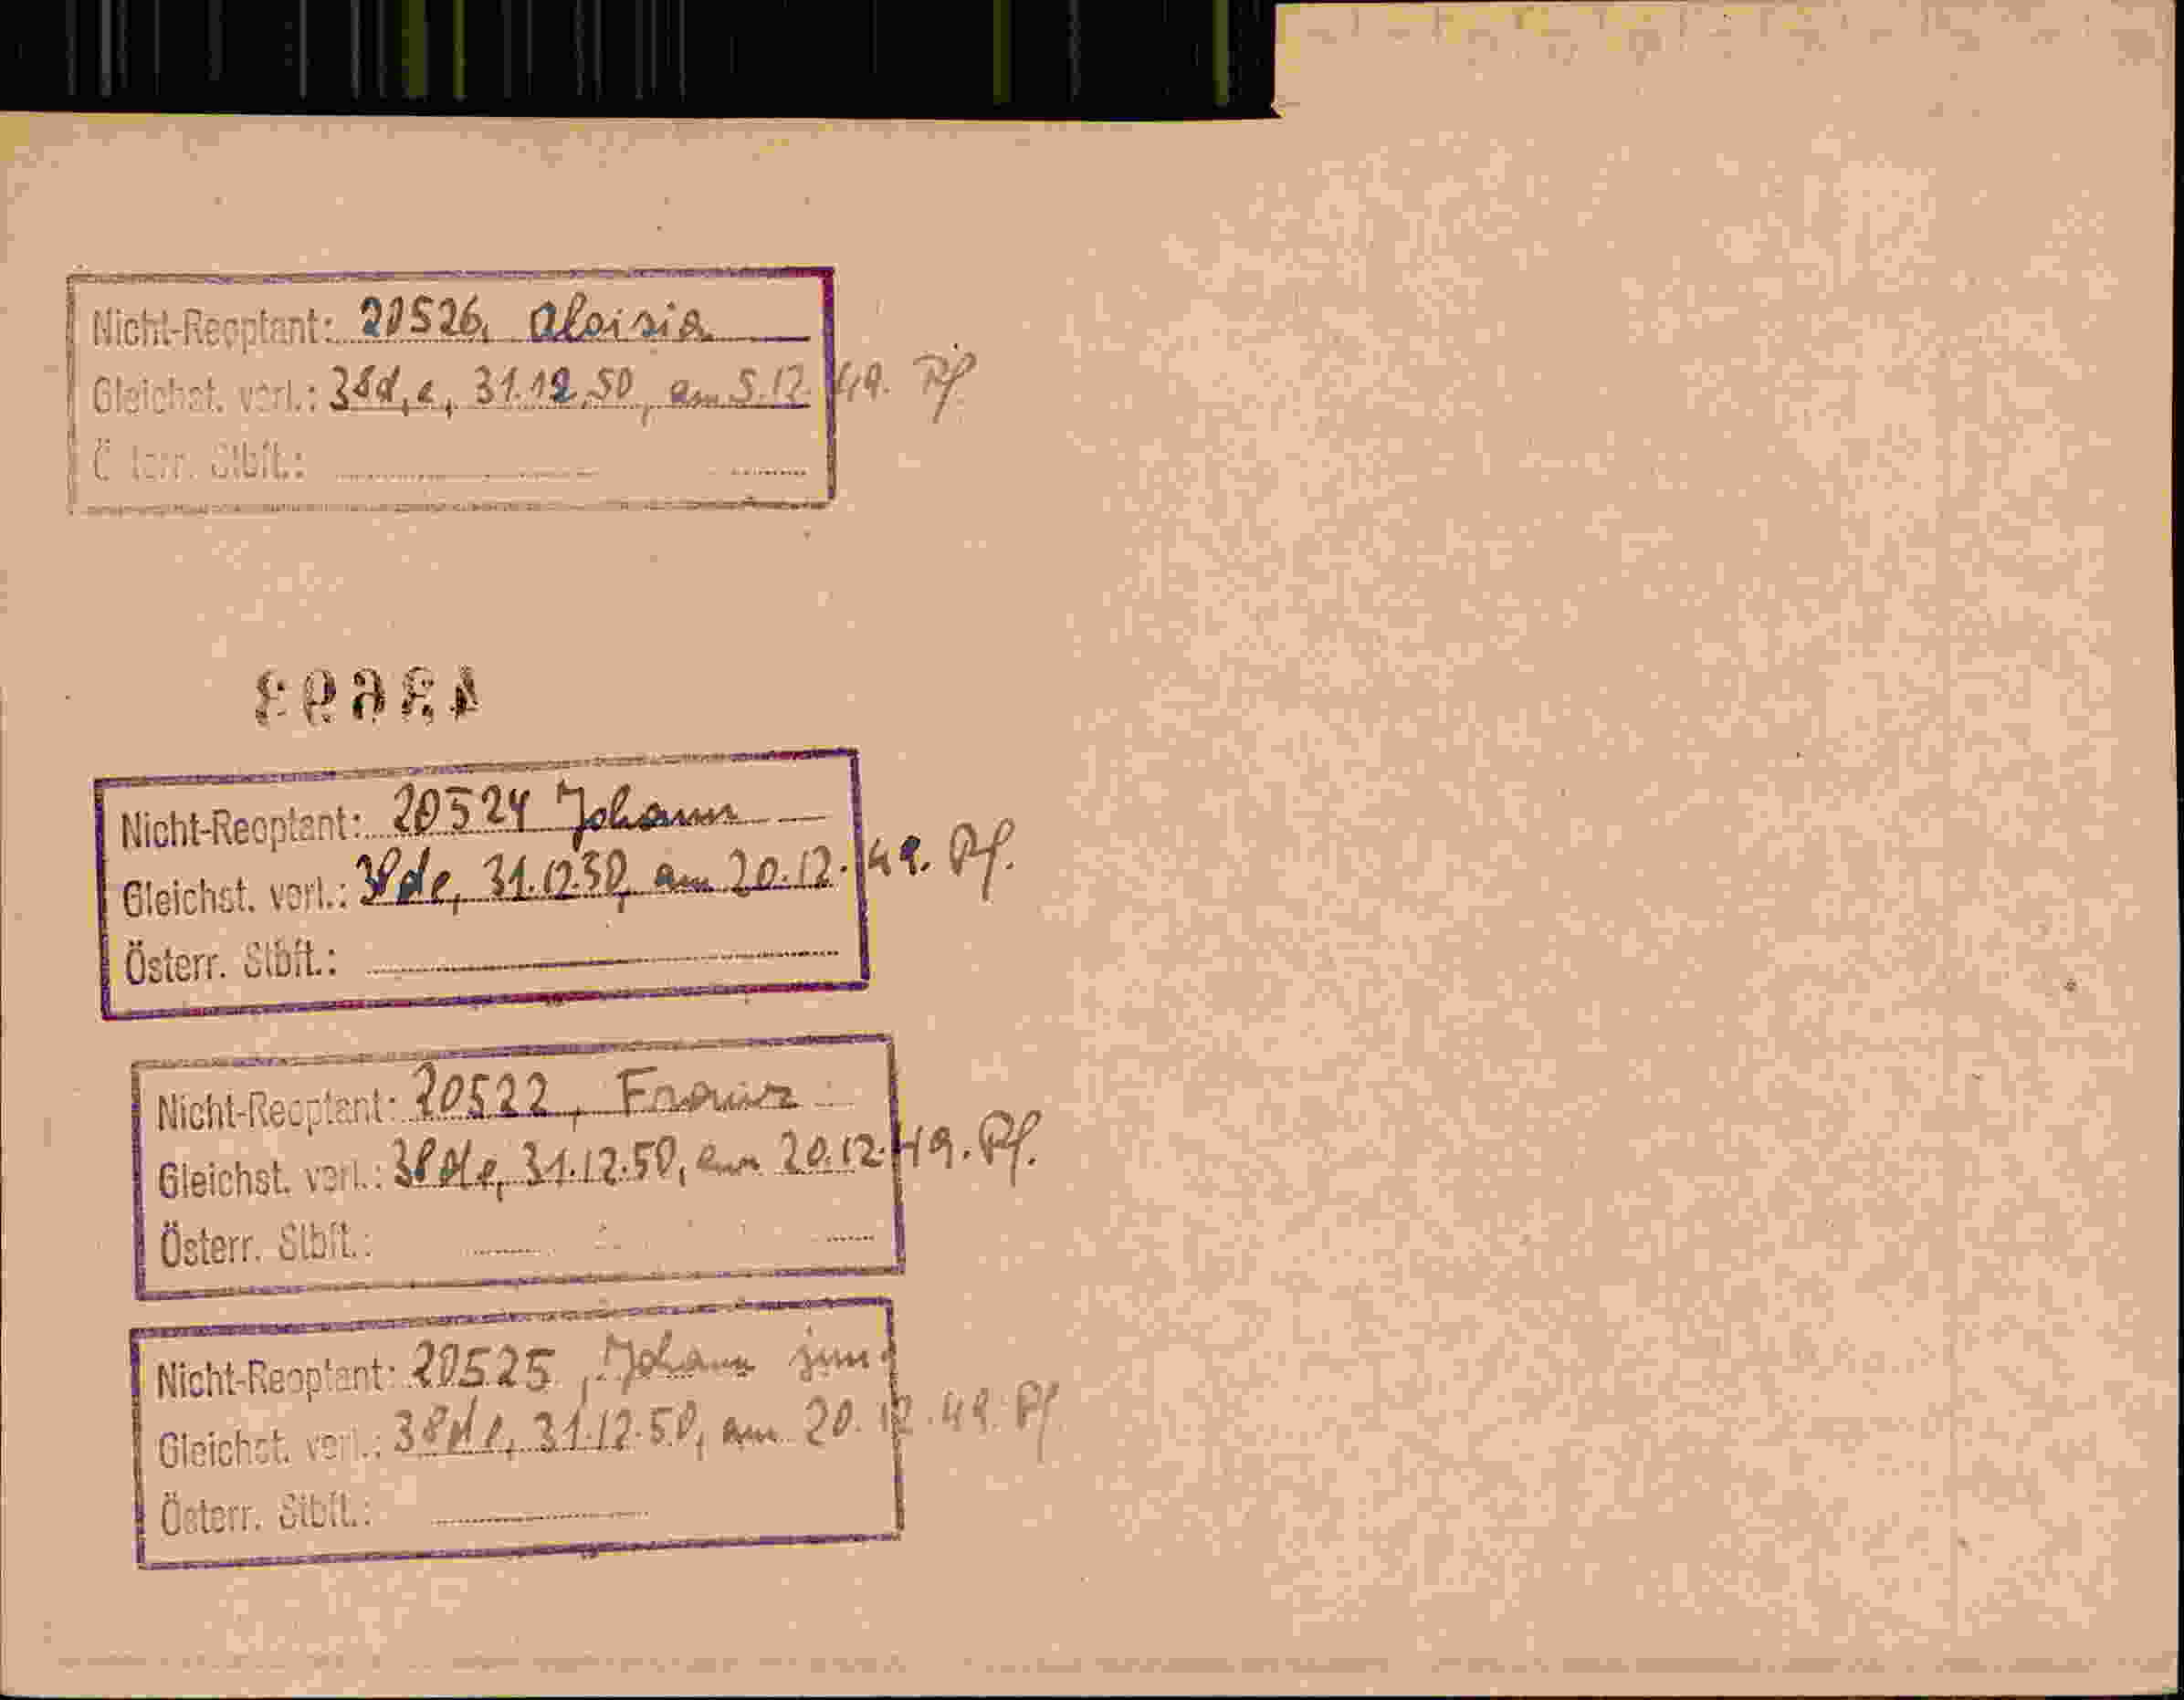 Nicht-Reoptant: 20526, Aloisia
Gleichst. verl.: 38d,e, 31.12.50, am 5.12.49. Pf
Österr. Stbft.:
Nicht-Reoptant: 20524 Johann
Gleichst. verl.: 38de, 31.12.50, am 20.12.49. Pf.
Österr. Stbft.:
Nicht-Reoptant: 20522, Franz
Gleichst. verl.: 38de, 31.12.50, am 20.12.49. Pf.
Österr. Stbft.:
Nicht-Reoptant: 20525, Johann jun.
Gleichst. verl.: 38de, 31.12.50, am 20.12.49. Pf.
Österr. Stbft.: